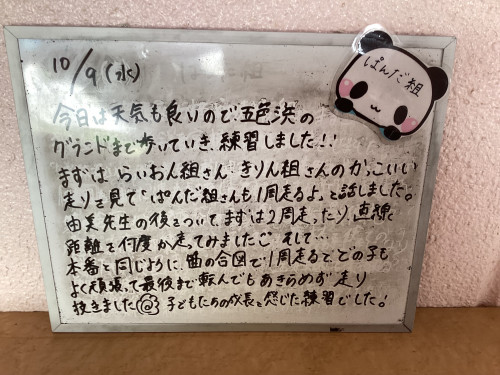 ぱんだ組
10/9(水)
今日は天気も良いので、五色浜の
グランドまで歩いていき、練習しました!!
まずは らいおん組さん・きりん組さんのかっこいい
走りを見て「ぱんだ組さんも1周走るよ」と話しました。
由美先生の後をついて、まずは2周走ったり、直線
距離を何度か走ってみました。そして…
本番と同じように、笛の合図で1周走ると、どの子も
よく頑張って最後まで転んでもあきらめず走り
抜きました 子どもたちの成長を感じた練習でした!